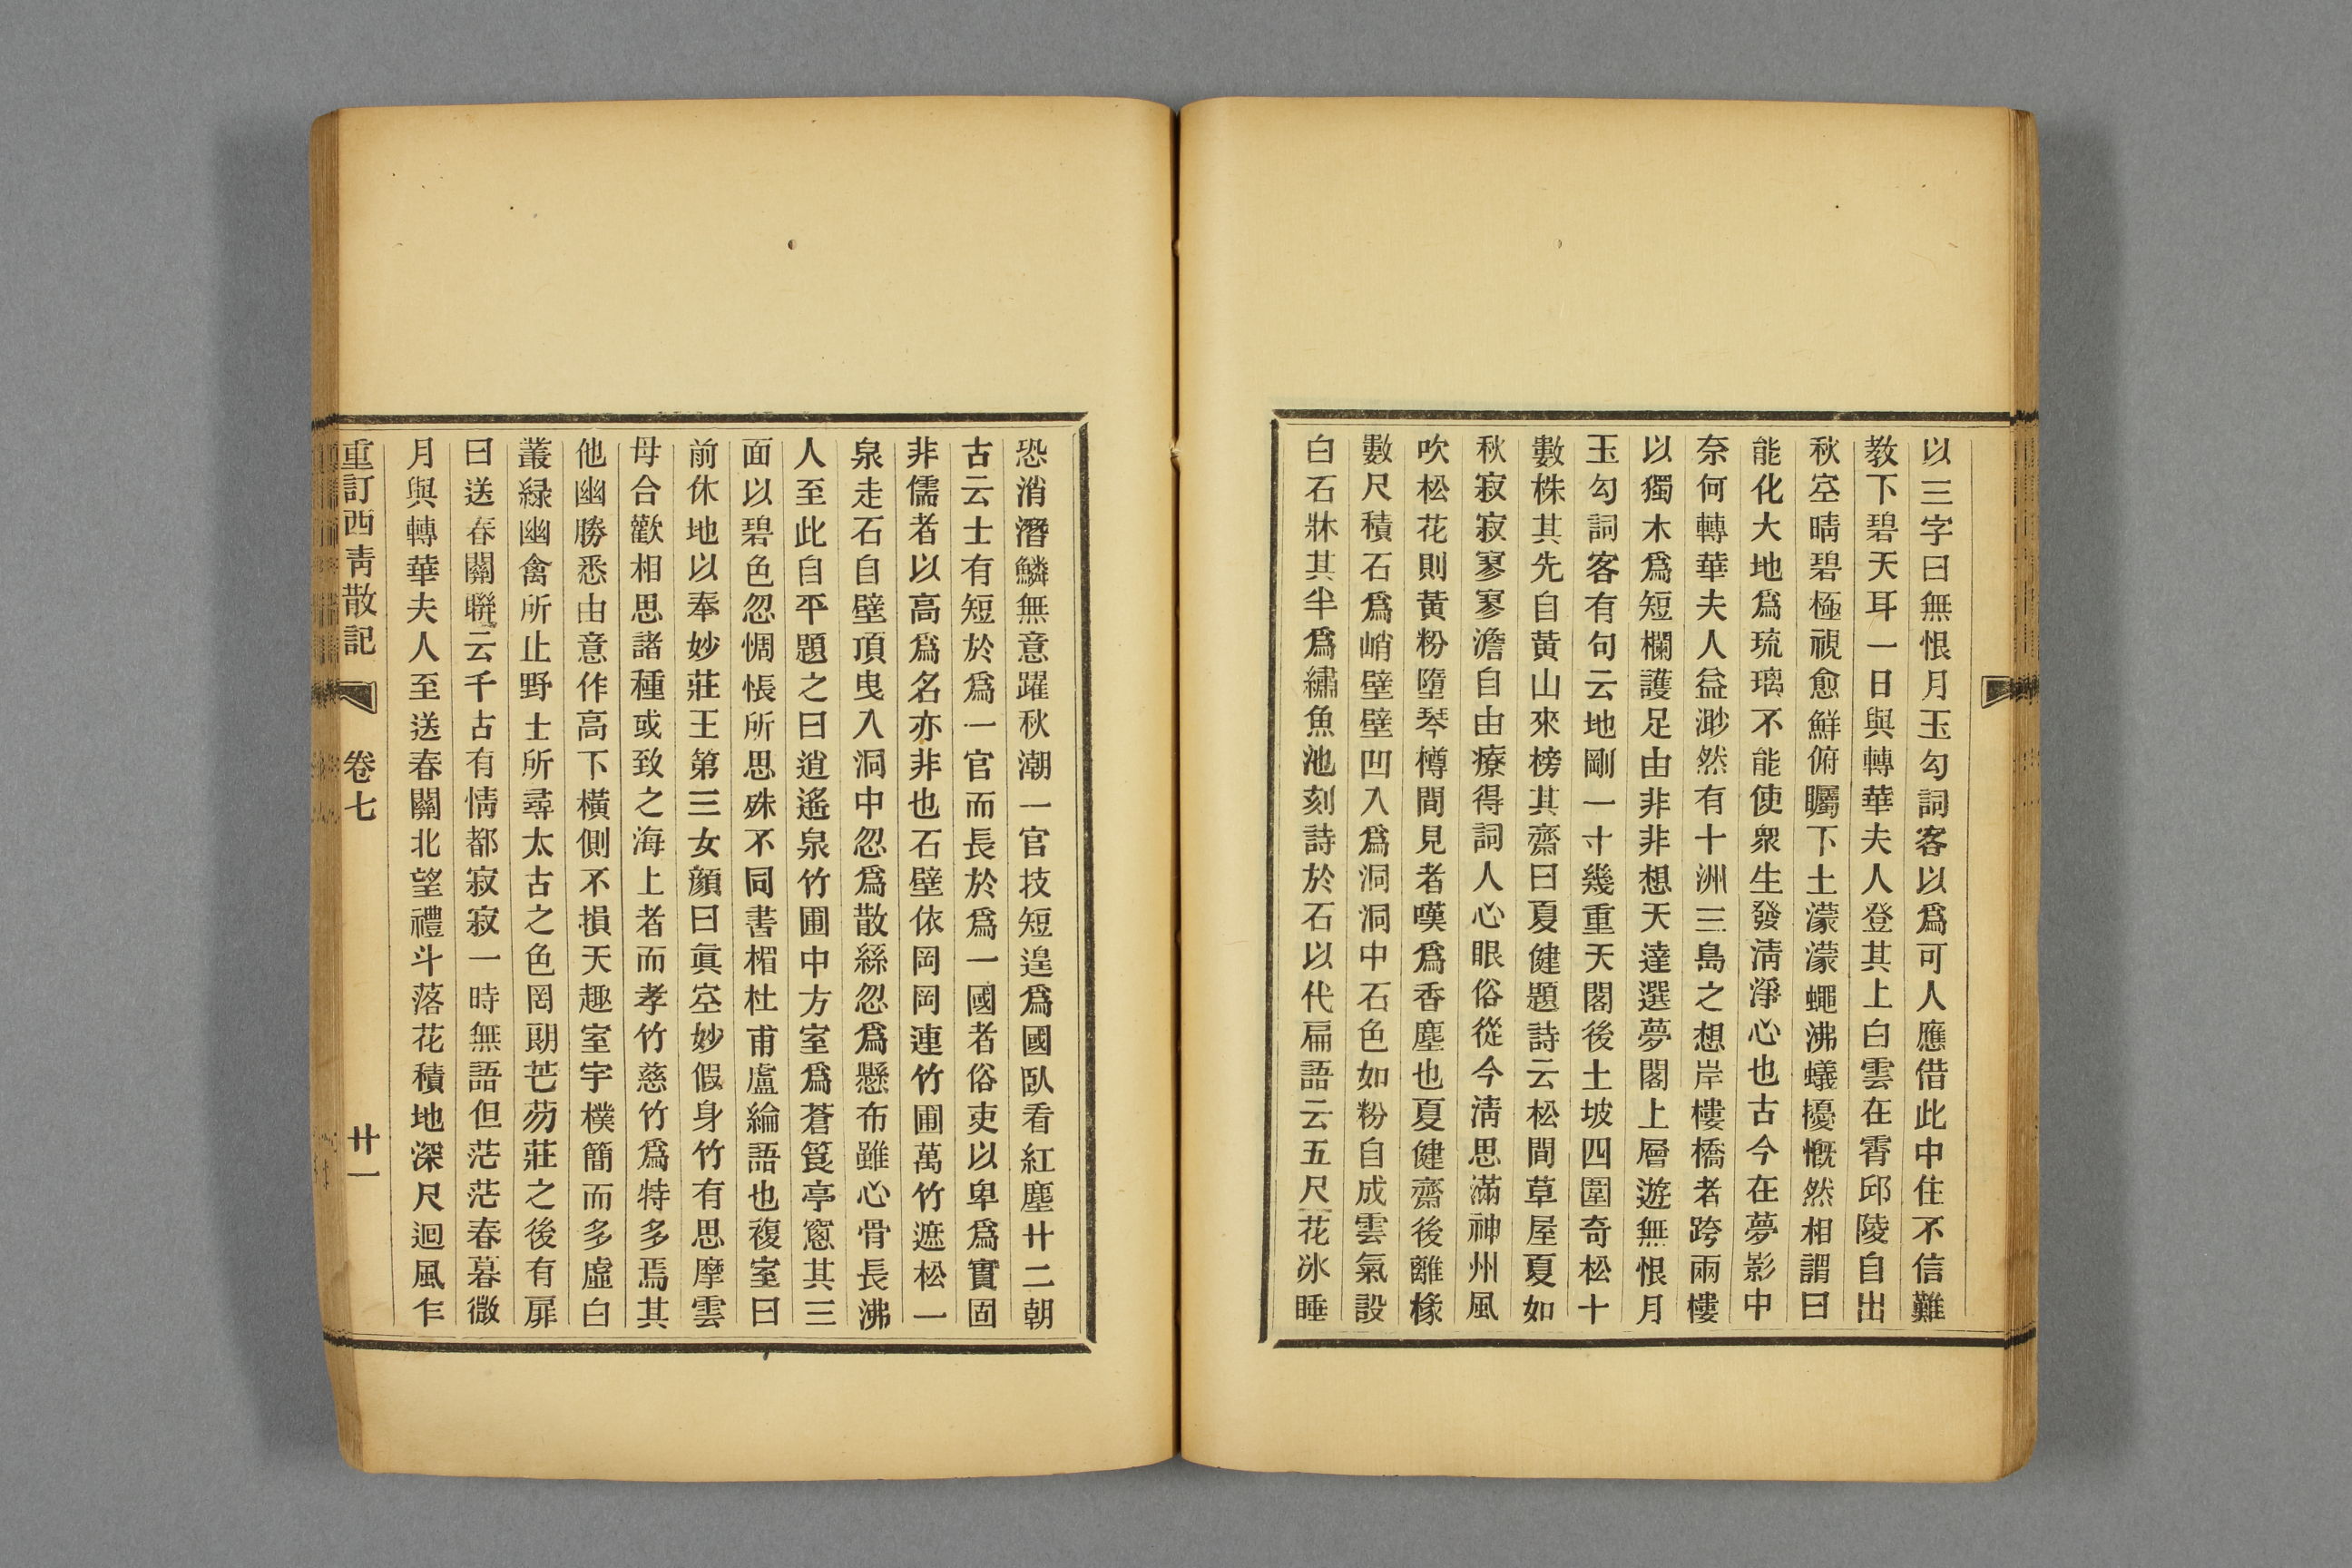 以三字曰無恨月玉勾詞客以爲可人應借此中住不信難
教下碧天耳一日與轉華夫人登其上白雲在霄邱陵自出
秋空晴碧極視愈鮮俯矚下土濛濛蠅沸蟻擾慨然相謂曰
能化大地爲琉璃不能使衆生發淸淨心也古今在夢影中
奈何轉華夫人益渺然有十洲三島之想岸樓橋者跨兩樓
以獨木爲短欄護足由非非想天達選夢閣上層遊無恨月
玉勾詞客有句云地剛一寸幾重天閣後土坡四圍奇松十
數株其先自黃山來榜其齋曰夏健題詩云松間草屋夏如
秋寂寂寥寥澹自由療得詞人心眼俗從今淸思滿神州風
吹松花則黃粉墮琴樽間見者嘆爲香塵也夏健齋後離椽
數尺積石爲峭壁壁凹入爲洞洞中石色如粉自成雲氣設
白石牀其半爲繡魚池刻詩於石以代扁語云五尺花氷睡
恐消潛鱗無意躍秋潮一官技短遑爲國臥看紅塵廿二朝
古云士有短於爲一官而長於爲一國者俗吏以卑爲實固
非儒者以高爲名亦非也石壁依岡岡連竹圃萬竹遮松一
泉走石自壁頂曳入洞中忽爲散絲忽爲懸布雖心骨長沸
人至此自平題之曰逍遙泉竹圃中方室爲蒼筤亭窻其三
面以碧色忽惆悵所思殊不同書楣杜甫盧綸語也複室曰
前休地以奉妙莊王第三女顏曰眞空妙假身竹有思摩雲
母合歡相思諸種或致之海上者而孝竹慈竹爲特多焉其
他幽勝悉由意作高下橫側不損天趣室宇樸簡而多虛白
叢緑幽禽所止野士所尋太古之色罔䏚芒芴莊之後有扉
曰送春關聯云千古有情都寂寂一時無語但茫茫春暮微
月與轉華夫人至送春關北望禮斗落花積地深尺迴風乍
重訂西靑散記 卷七 廿一